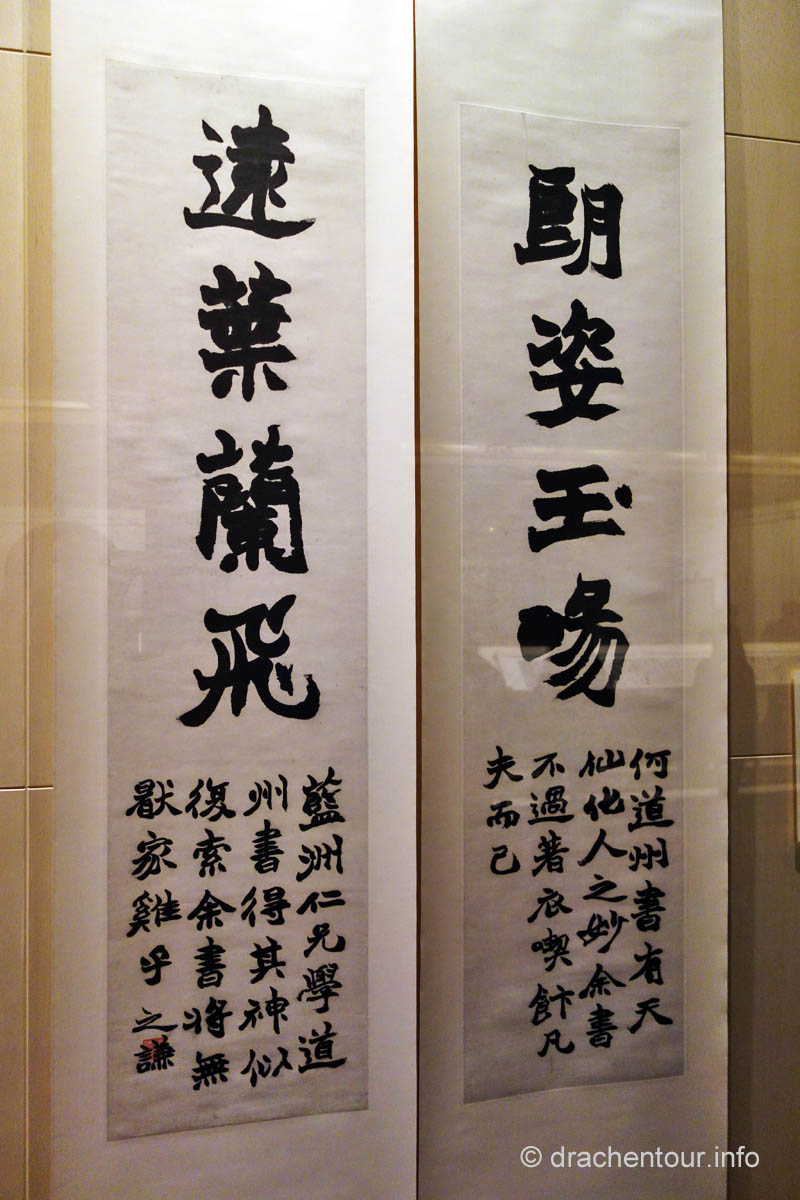 朗姿玉暢
何道州書有天
仙化人之妙余書
不過著衣喫飰凡
夫而已
遠葉蘭飛
藍洲仁兄學道
州書得其神似
復索余書將無
猒家雞乎之謙
© drachentour.info